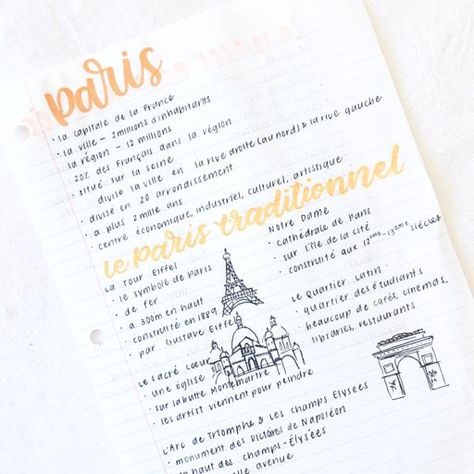 paris
• la capitale de la France
• la ville - 2 millions d'inhabitants
la région - 12 millions
20% des Français dans la région
• situé: sur la seine
divise la ville en la rive droite (au nord) & la rive gauche
• divisé en 20 arrondissement
• a plus 2 mille ans
• centre économique, industriel, culturel, artistique
le paris traditionnel
La Tour Eiffel
• le symbole de paris
• de fer
• a 300m en haut
• construite en 1889
• par Gustave Eiffel
Le Sacré Coeur
• une église
• sur la butte Montemartre
• les artist viennent pour peindre
Notre Dame
• cathédrale de Paris
• sur l'île de la cité
• construite aux 12ème-13ème siècles
Le Quartier Latin
• quartier des étudiants
• beaucoup de cafés, cinémas,
libraries, restaurants
L'Arc de Triomphe & les Champs Elysees
• monument des victoires de Napoléon
en haut des champs-Élysées
avenue